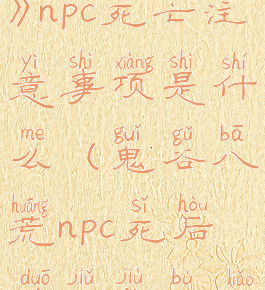 》npc死亡注
yì shì xiàng shì shí
意事项是什
me guǐ gǔ bā
么(鬼谷八
huāng sǐ hòu
荒npc死后
duō jiǔ jiù bù liǎo